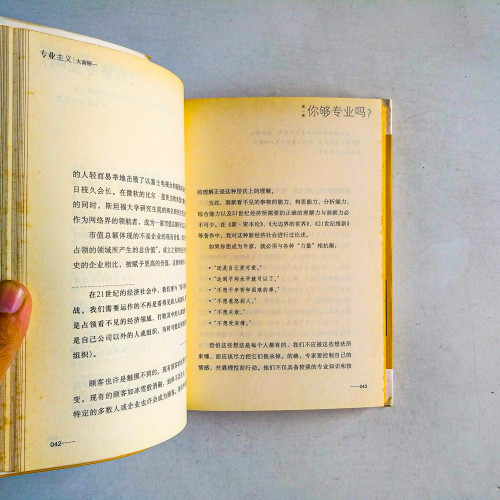 专业主义 | 大前研一
的人轻而易举地击败了以富士电视台
日枝久会长。在微软的比尔·盖茨
的同时,斯坦福大学研究生院的
作为网络界的领航者,成为一
市值总额体现的不正是
占领的领域所产生的总价值”。成立之初
史的企业相比,被赋予更高的价值。
在21世纪的经济社会中,我们要为
战。我们需要运作的不再是看得见的
是占领看不见的经济领域,打败其中的
是自己公司以外的人或组织,有时可能
组织)。
顾客也许是触摸不到的。现有顾客
变。现有的顾客如冰雪般消融,
特定的多数人或企业也许会成为顾客。
042
第一章
你够专业吗?
的理解正是这种层次上的理解。
为此,洞察看不见的事物的能力、构思能力、分析能力、
综合能力以及21世纪经济所需要的正确的理解力与洞察力必
不可少。在《新·资本论》、《无边界的世界》、《21世纪维新》
等著作中,我对这种新经济社会进行过论述。
如果你想成为专家,就必须与各种“力量”相抗衡:
• “还是自己更可爱。”
• “达到平均水平就可以了。”
• “不想干辛苦和困难的事。”
• “不想鹤立别人。”
• “不想失败。”
• “不想受束缚。”
恐怕这些想法是每个人都有的。我们不应被这些想法所
束缚,而应该尽力把它们抛去掉。的确,专家要控制自己的
情感,并靠理性而行动。他们不仅具备较强的专业知识和技
043